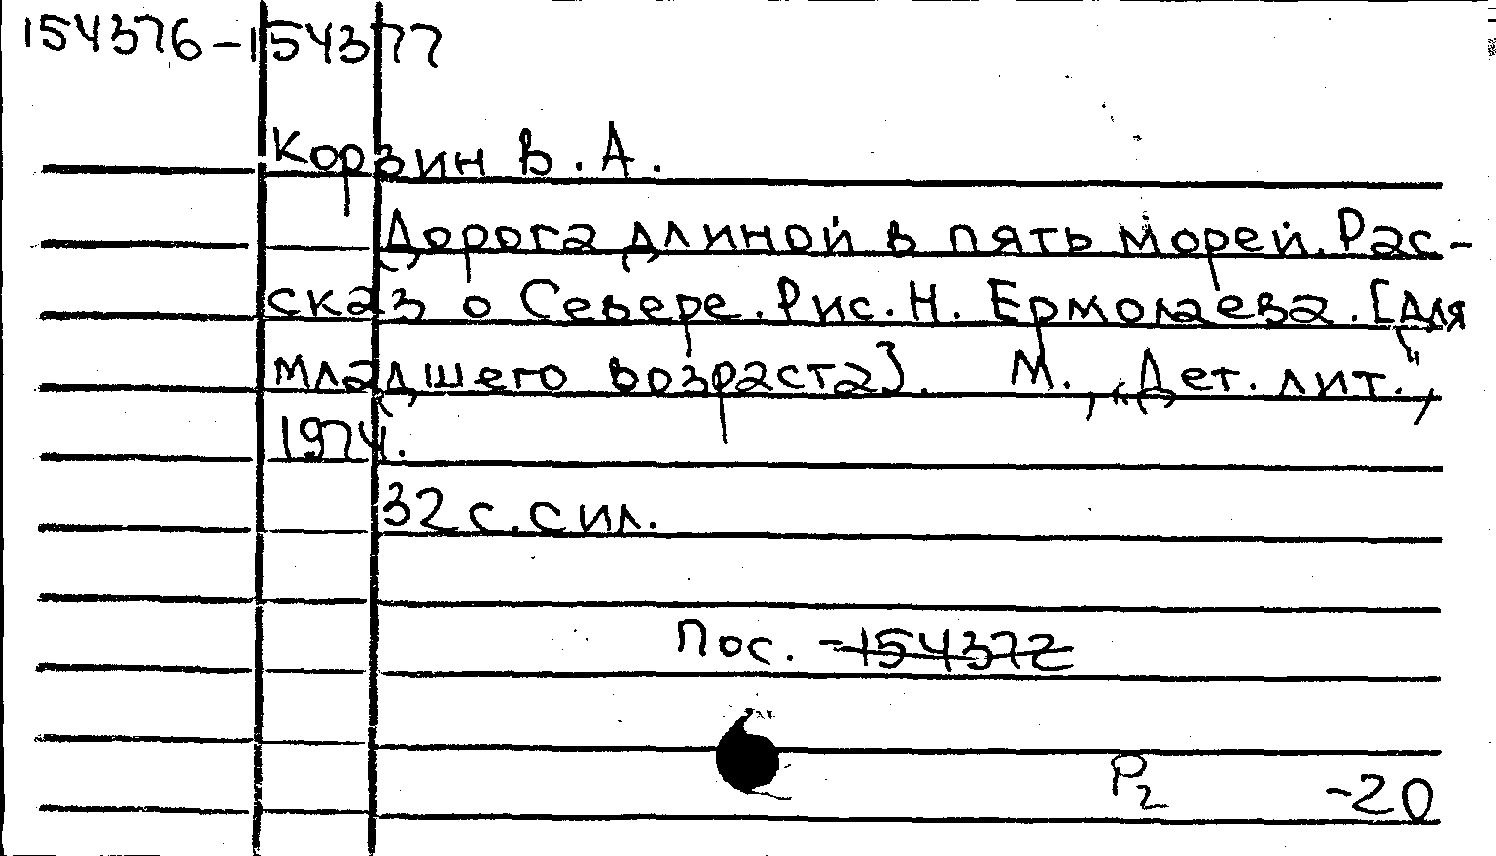 154376-154377
Корзин В. А.
Дорога длиной в пять морей. Рас-
сказ о Севере. Рис. Н. Ермолаева. [Для
младшего возраста]. М., „Дет. лит.",
1974.
32 с. с ил.
Пос. -154377
Р2 -20